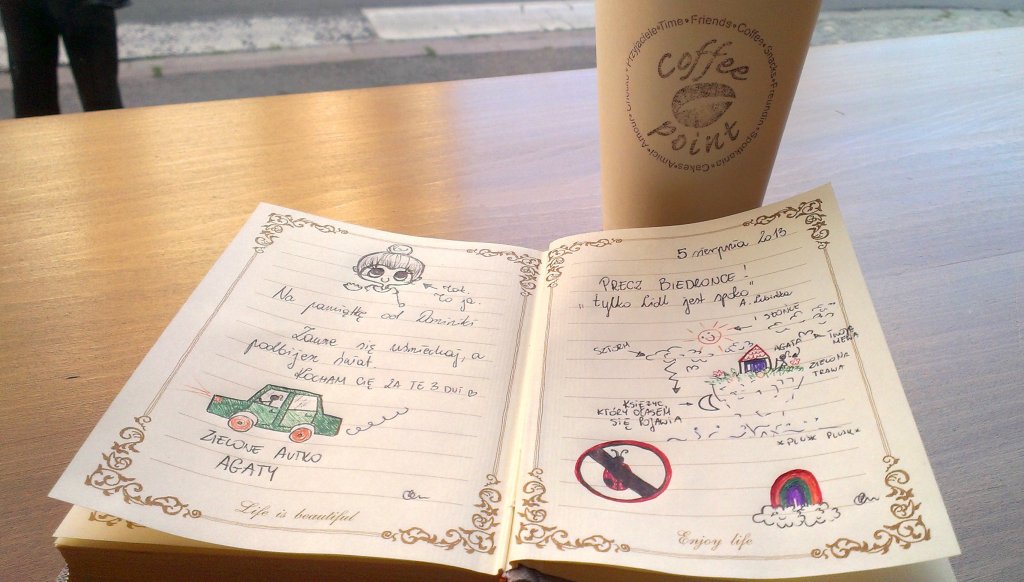 Przyjaciele • Time • Friends • Coffee • Snacks • Freundin • Spotkania • Cakes • Amici • Amour
coffee
point
rok.
To ja.
Na pamiątkę od
Zawsze się uśmiechaj, a
podbijesz świat.
KOCHAM CIĘ ZA TE 3 DNI
ZIELONE AUTKO
AGATY
Life is beautiful
5 sierpnia 2013
PRECZ BIEDRONCE!
"tylko Lidl jest spoko"
A.
SŁOŃCE
SZTORM
AGATA
TWOJE
ZIELONA
TRAWA
KSIĘŻYC
KTÓRY CZASEM
SIĘ POJAWIA
*PLUSK PLUSK*
Enjoy life